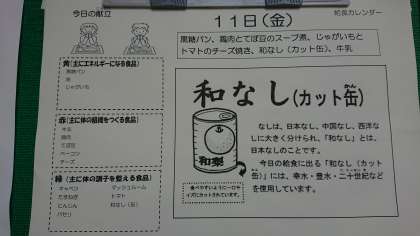 今日の献立
給食カレンダー
11日(金)
黒糖パン、鶏肉とてぼ豆のスープ煮、じゃがいもと
トマトのチーズ焼き、和なし(カット缶)、牛乳
黄(主にエネルギーになる食品)
黒糖パン
じゃがいも
赤(主に体の組織をつくる食品)
牛乳
鶏肉
てぼ豆
ベーコン
チーズ
緑(主に体の調子を整える食品)
キャベツ マッシュルーム
たまねぎ トマト
にんじん 和なし(缶)
パセリ
和なし(カット缶)
かん
和梨
食べやすいように一口サ
イズにカットされています。
なしは、日本なし、中国なし、西洋な
しに大きく分けられ、「和なし」とは、
日本なしのことです。
今日の給食に出る「和なし(カット
缶)」には、幸水・豊水・二十世紀など
を使用しています。